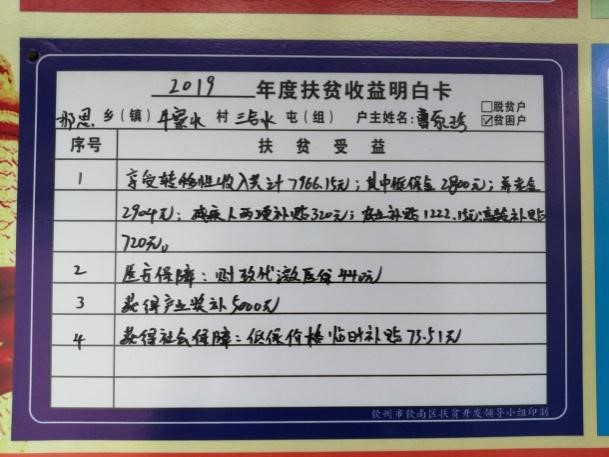 2019 年度扶贫收益明白卡
那思 乡(镇) 牛寮水 村 三占水 屯(组) 户主姓名: 曹家珍 □脱贫户 ☑贫困户
序号 扶贫受益
1 享受转移性收入共计7966.15元;其中低保金2800元;养老金
2904元;残疾人两项补贴320元;农业补贴1222.15元;高龄补贴
720元。
2 医疗保障:财政代缴医保440元
3 获得产业奖补5000元
4 获得社会保障:低保价格临时补贴73.51元
钦州市钦南区扶贫开发领导小组印制